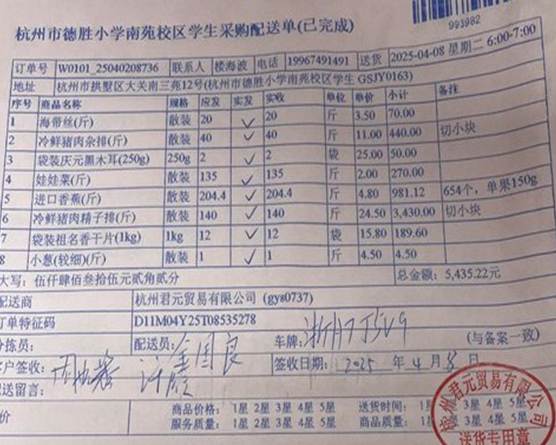 993982
杭州市德胜小学南苑校区学生采购配送单(已完成)
订单号 W0101_25040208736 联系人 楼海波 电话 19967491491 送货 2025-04-08 星期二 6:00-7:00
地址 杭州市拱墅区大关南三苑12号(杭州市德胜小学南苑校区学生 GSJY0163)
序号 商品名称 规格 应发 实发 实收 单位 单价 小计 备注
1 海带丝(斤) 散装 20 ✓ 20 斤 3.50 70.00
2 冷鲜猪肉杂排(斤) 散装 40 ✓ 40 斤 11.00 440.00 切小块
3 袋装庆元黑木耳(250g) 250g 2 ✓ 2 袋 25.00 50.00
4 娃娃菜(斤) 散装 135 ✓ 135 斤 2.00 270.00
5 进口香蕉(斤) 散装 204.4 ✓ 204.4 斤 4.80 981.12 654个，单果150g
6 冷鲜猪肉精子排(斤) 散装 140 ✓ 140 斤 24.50 3,430.00 切小块
7 袋装祖名香干片(1kg) 1kg 12 ✓ 12 袋 15.80 189.60
8 小葱(较细)(斤) 散装 1 ✓ 1 斤 4.50 4.50
大写：伍仟肆佰叁拾伍元贰角贰分 总金额：5,435.22元
配送商 杭州君元贸易有限公司 (gys0737)
订单特征码 D11M04Y25T08535278
分拣员： 配送员： 金国良 车牌： (与备案一致)
客户签收： 签收日期： 2025 年 4 月 8 日
配送留言：
价 商品价格： 1星 2星 3星 4星 5星 送货时间： 1星 2星 3星 4星 5星
服务质量： 1星 2星 3星 4星 5星 商品质量： 1星 2星 3星 4星 5星
杭州君元贸易有限公司
送货专用章